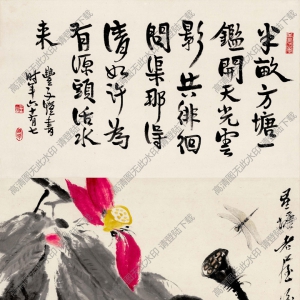 半畝方塘一
鑑開天光雲
影共徘徊
問渠那得
清如许為
有源頭活水
来
豐子愷書
时年六十有七
星塘老屋